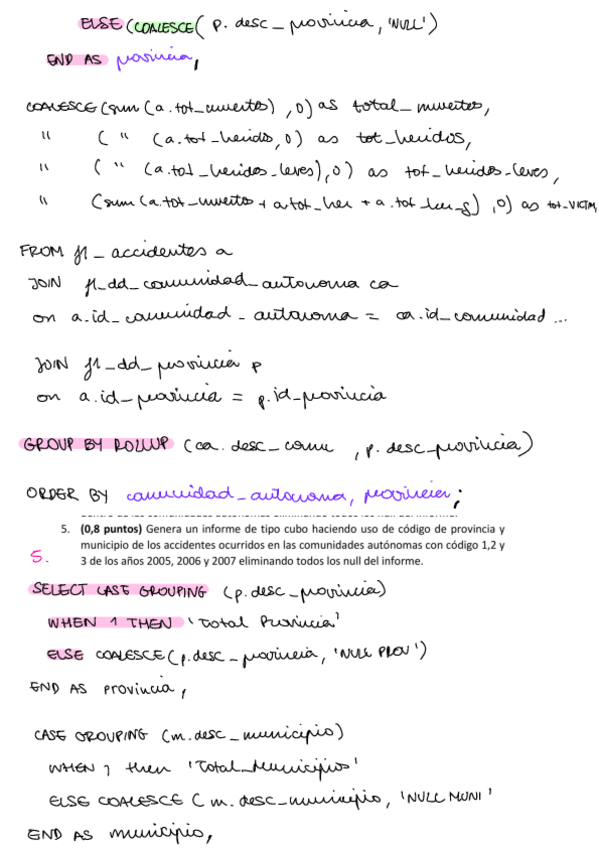 ELSE (COALESCE( p. desc_provincia, 'NULL')
END AS provincia,
COALESCE (sum (a.tot_muertos) ,0) as total_muertos,
" ( " (a.tot_heridos,0) as tot_heridos,
" ( " (a.tot_heridos_leves),0) as tot_heridos_leves,
" (sum (a.tot_muertos + a.tot_her + a.tot_her_g) ,0) as tot_VICTM,
FROM f1_accidentes a
JOIN f1_dd_comunidad_autonoma ca
on a.id_comunidad_autonoma = ca.id_comunidad ...
JOIN f1_dd_provincia p
on a.id_provincia = p.id_provincia
GROUP BY ROLLUP (ca.desc_comu , p.desc_provincia)
ORDER BY comunidad_autonoma, provincia;
5. (0,8 puntos) Genera un informe de tipo cubo haciendo uso de código de provincia y
municipio de los accidentes ocurridos en las comunidades autónomas con código 1,2 y
5. 3 de los años 2005, 2006 y 2007 eliminando todos los null del informe.
SELECT CASE GROUPING (p.desc_provincia)
WHEN 1 THEN 'Total Provincia'
ELSE COALESCE (p.desc_provincia, 'NULL PROV')
END AS provincia,
CASE GROUPING (m.desc_municipio)
WHEN 1 then 'Total_Municipios'
ELSE COALESCE ( m.desc_municipio, 'NULL MUNI'
END AS municipio,